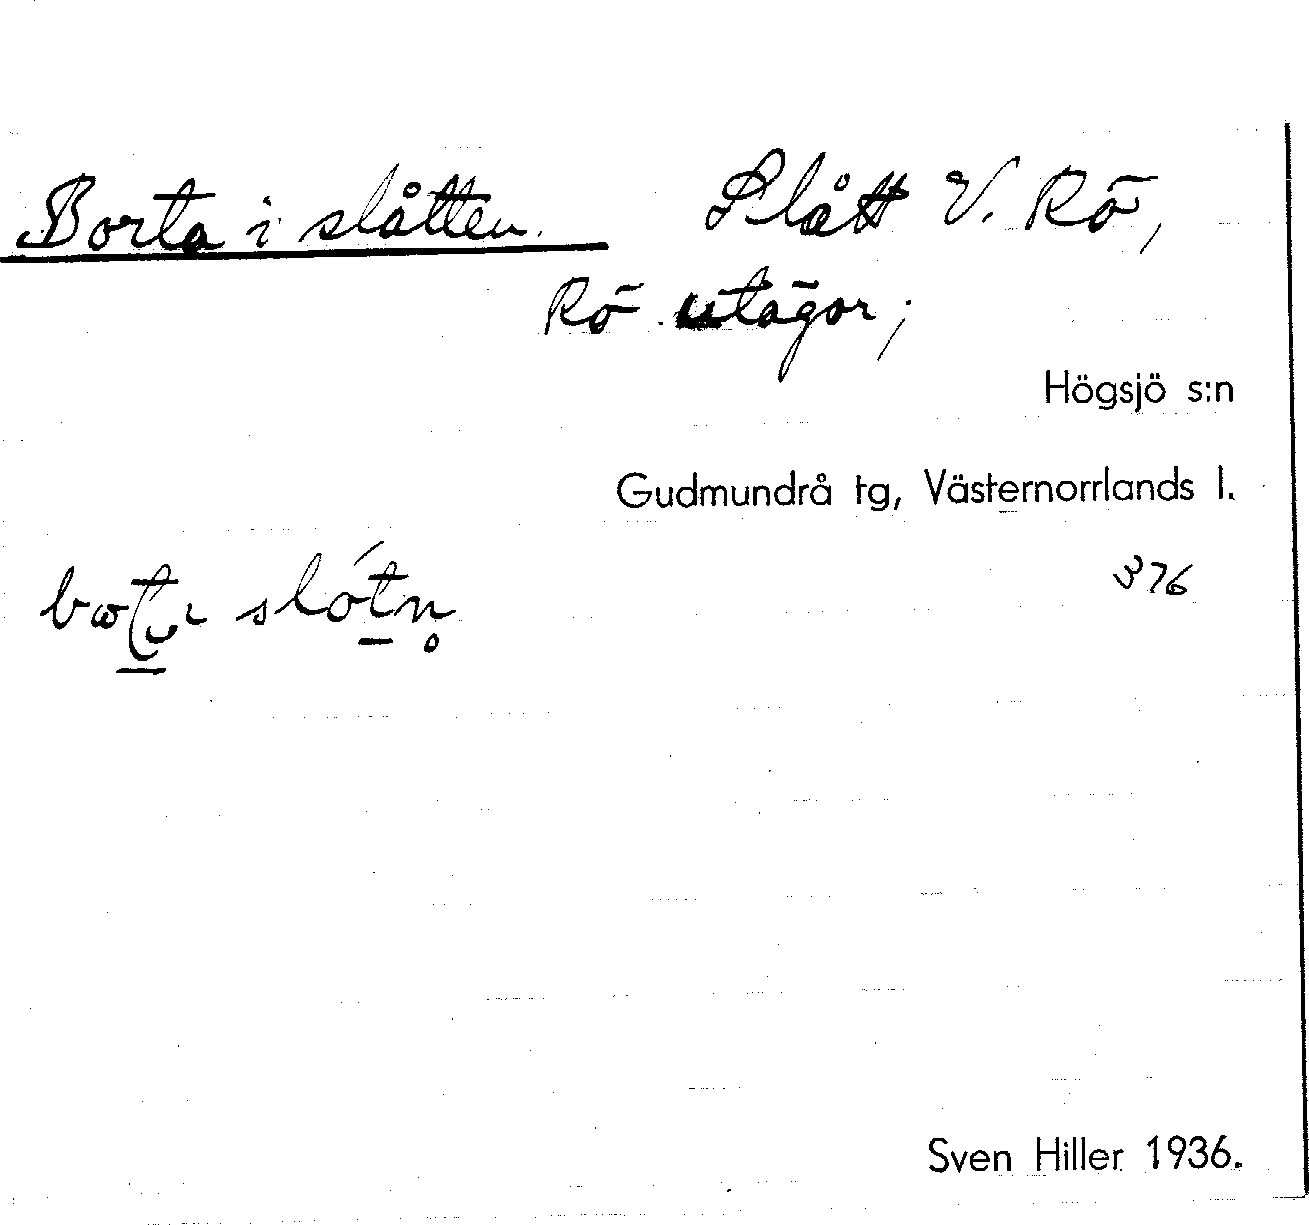 Borta i slåtten. Slått V. Rö,
Rö utägor;
Högsjö s:n
Gudmundrå tg, Västernorrlands l.
376
slótn̥
Sven Hiller 1936.